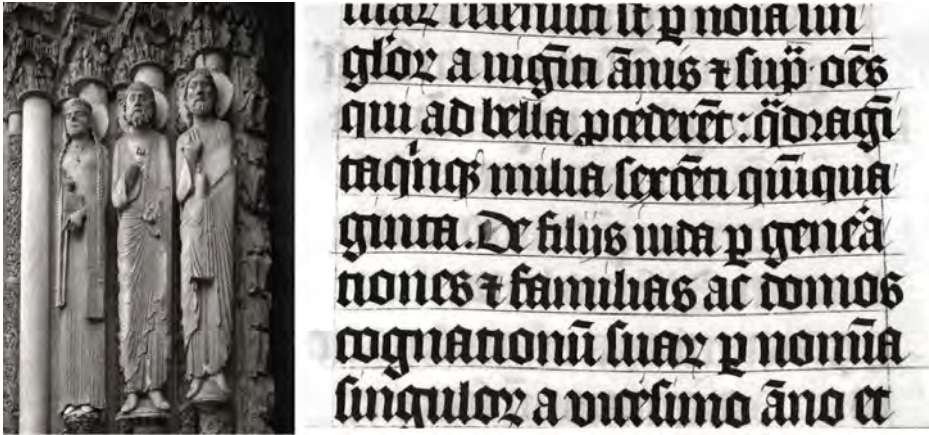 ꝑ noīa sin
gĺoꝝ a uiginti ānis ⁊ suꝑ oēs
qui ad bella ꝓcederēt : qͣdragī
taqͥnqꝫ milia sexcēti quīqua
ginta. De filijs iuda ꝑ gen̄ea
tiones ⁊ familias ac domos
cognationū suaꝝ ꝑ nomīa
singuloꝝ a vicesimo āno et